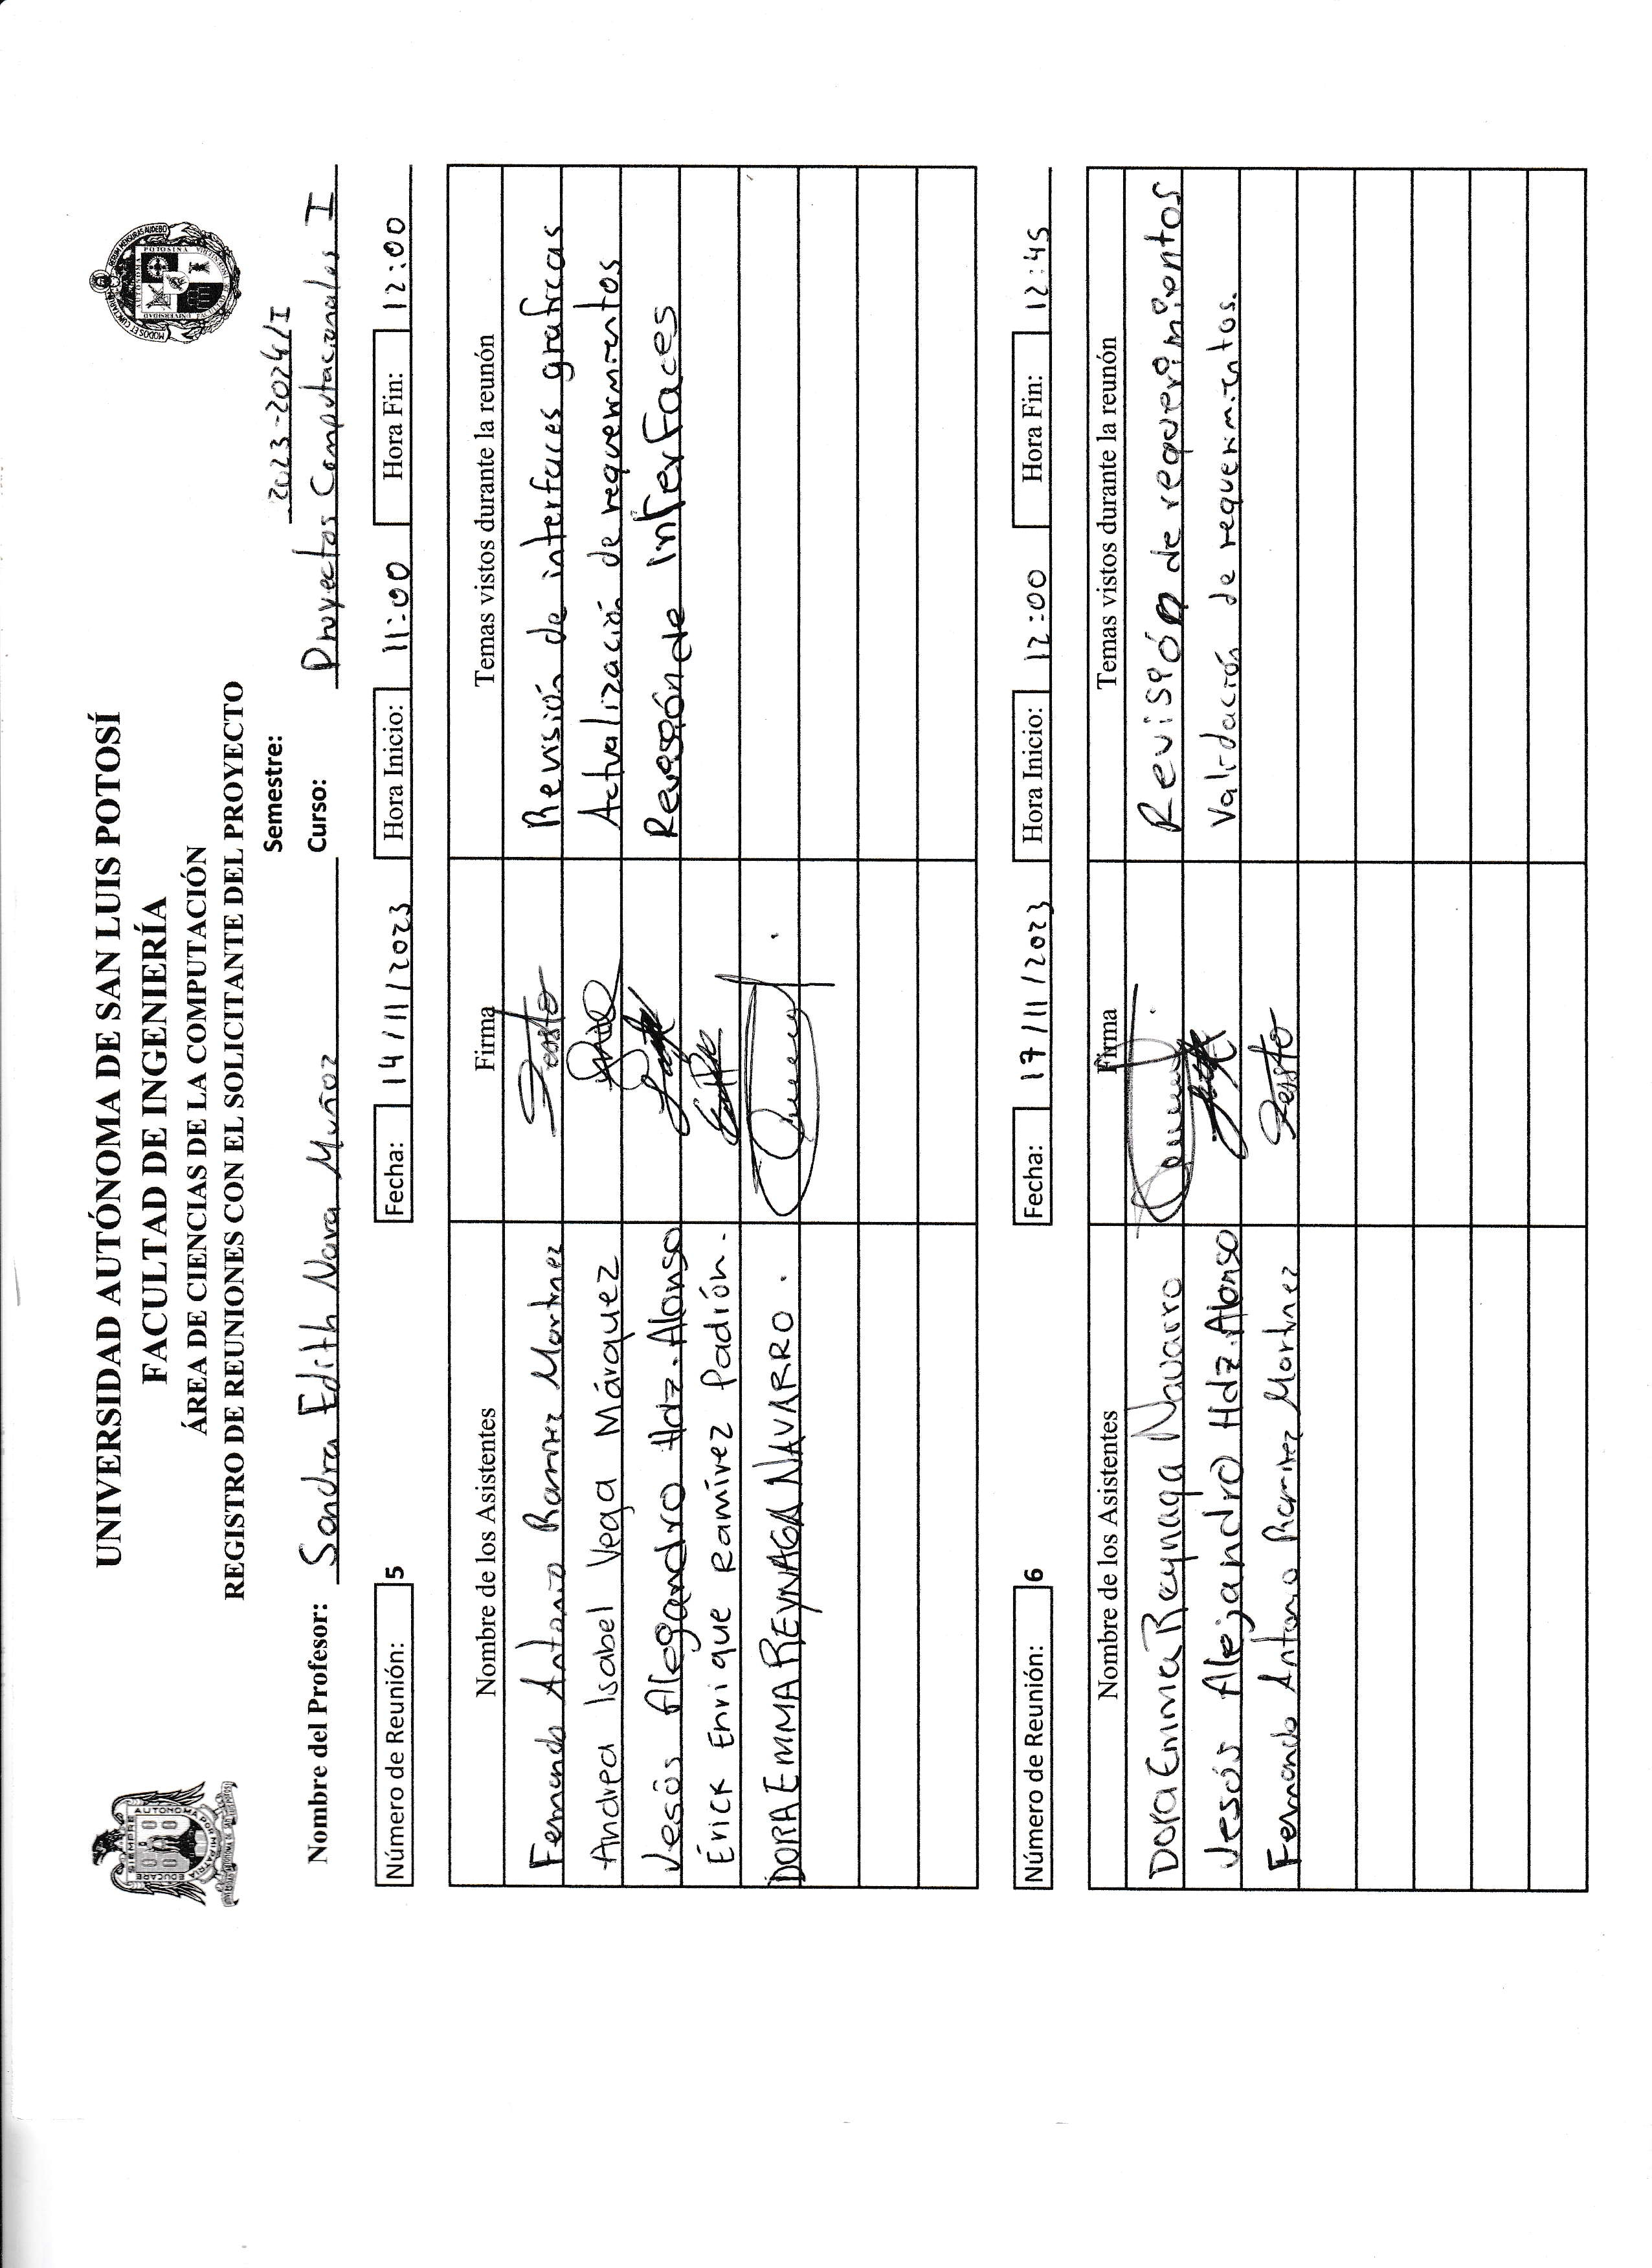 UNIVERSIDAD AUTÓNOMA DE SAN LUIS POTOSÍ
FACULTAD DE INGENIERÍA
ÁREA DE CIENCIAS DE LA COMPUTACIÓN
REGISTRO DE REUNIONES CON EL SOLICITANTE DEL PROYECTO
Semestre: 2023-2024/I
Nombre del Profesor: Sandra Edith Nava Muñoz Curso: Proyectos Computacionales I
Número de Reunión: 5 Fecha: 14/11/2023 Hora Inicio: 11:00 Hora Fin: 12:00
Nombre de los Asistentes Firma Temas vistos durante la reunón
Fernando Antonio Ramirez Martinez Revisión de interfaces graficas
Andrea Isabel Vega Márquez Actualización de requerimientos
Jesús Alegandro Hdz. Alonso Revisión de interfaces
Érick Enrique Ramírez Padrón.
DORA EMMA REYNAGA NAVARRO.
Número de Reunión: 6 Fecha: 17/11/2023 Hora Inicio: 12:00 Hora Fin: 12:45
Nombre de los Asistentes Firma Temas vistos durante la reunón
Dora Emma Reynaga Navarro Revisión de requerimientos
Jesús Alejandro Hdz. Alonso Validación de requerimientos.
Fernando Antonio Ramirez Martinez